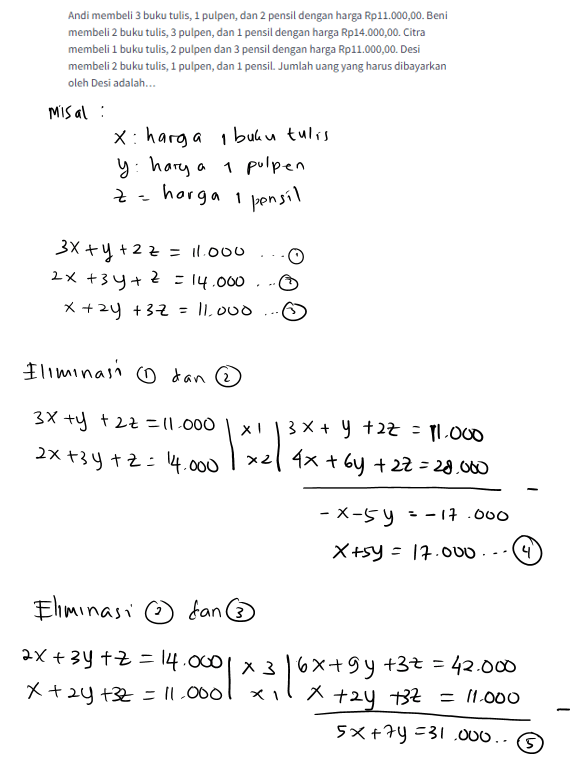 Andi membeli 3 buku tulis, 1 pulpen, dan 2 pensil dengan harga Rp11.000,00. Beni
membeli 2 buku tulis, 3 pulpen, dan 1 pensil dengan harga Rp14.000,00. Citra
membeli 1 buku tulis, 2 pulpen dan 3 pensil dengan harga Rp11.000,00. Desi
membeli 2 buku tulis, 1 pulpen, dan 1 pensil. Jumlah uang yang harus dibayarkan
oleh Desi adalah...
Misal :
x : harga 1 buku tulis
y : harga 1 pulpen
z = harga 1 pensil
3x + y + 2z = 11.000 ... ①
2x + 3y + z = 14.000 ... ②
x + 2y + 3z = 11.000 ... ③
Eliminasi ① dan ②
3x + y + 2z = 11.000 | x 1 | 3x + y + 2z = 11.000
2x + 3y + z = 14.000 | x 2 | 4x + 6y + 2z = 28.000
-
-x - 5y = -17.000
x + 5y = 17.000 ... ④
Eliminasi ② dan ③
2x + 3y + z = 14.000 | x 3 | 6x + 9y + 3z = 42.000
x + 2y + 3z = 11.000 | x 1 | x + 2y + 3z = 11.000
-
5x + 7y = 31.000 .. ⑤